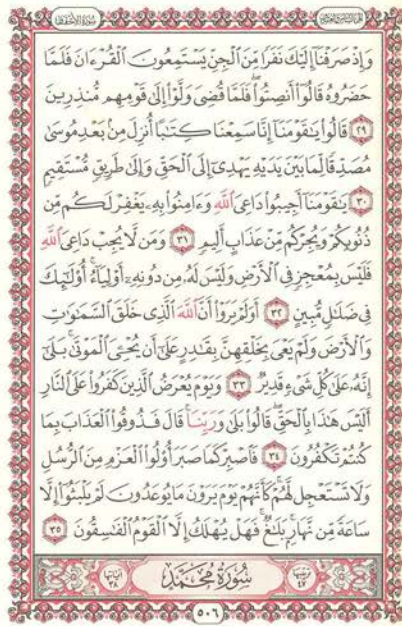 سُورَةُ الأَحْقَافِ
وَإِذْ صَرَفْنَآ إِلَيْكَ نَفَرًا مِّنَ ٱلْجِنِّ يَسْتَمِعُونَ ٱلْقُرْءَانَ فَلَمَّا
حَضَرُوهُ قَالُوٓا۟ أَنصِتُوا۟ ۖ فَلَمَّا قُضِىَ وَلَّوْا۟ إِلَىٰ قَوْمِهِم مُّنذِرِينَ
٢٩ قَالُوا۟ يَٰقَوْمَنَآ إِنَّا سَمِعْنَا كِتَٰبًا أُنزِلَ مِنۢ بَعْدِ مُوسَىٰ
مُصَدِّقًا لِّمَا بَيْنَ يَدَيْهِ يَهْدِىٓ إِلَى ٱلْحَقِّ وَإِلَىٰ طَرِيقٍ مُّسْتَقِيمٍ
٣٠ يَٰقَوْمَنَآ أَجِيبُوا۟ دَاعِىَ ٱللَّهِ وَءَامِنُوا۟ بِهِۦ يَغْفِرْ لَكُم مِّن
ذُنُوبِكُمْ وَيُجِرْكُم مِّنْ عَذَابٍ أَلِيمٍ ٣١ وَمَن لَّا يُجِبْ دَاعِىَ ٱللَّهِ
فَلَيْسَ بِمُعْجِزٍ فِى ٱلْأَرْضِ وَلَيْسَ لَهُۥ مِن دُونِهِۦٓ أَوْلِيَآءُ ۚ أُو۟لَٰٓئِكَ
فِى ضَلَٰلٍ مُّبِينٍ ٣٢ أَوَلَمْ يَرَوْا۟ أَنَّ ٱللَّهَ ٱلَّذِى خَلَقَ ٱلسَّمَٰوَٰتِ
وَٱلْأَرْضَ وَلَمْ يَعْىَ بِخَلْقِهِنَّ بِقَٰدِرٍ عَلَىٰٓ أَن يُحْۦِىَ ٱلْمَوْتَىٰ ۚ بَلَىٰٓ
إِنَّهُۥ عَلَىٰ كُلِّ شَىْءٍ قَدِيرٌ ٣٣ وَيَوْمَ يُعْرَضُ ٱلَّذِينَ كَفَرُوا۟ عَلَى ٱلنَّارِ
أَلَيْسَ هَٰذَا بِٱلْحَقِّ ۖ قَالُوا۟ بَلَىٰ وَرَبِّنَا ۚ قَالَ فَذُوقُوا۟ ٱلْعَذَابَ بِمَا
كُنتُمْ تَكْفُرُونَ ٣٤ فَٱصْبِرْ كَمَا صَبَرَ أُو۟لُوا۟ ٱلْعَزْمِ مِنَ ٱلرُّسُلِ
وَلَا تَسْتَعْجِل لَّهُمْ ۚ كَأَنَّهُمْ يَوْمَ يَرَوْنَ مَا يُوعَدُونَ لَمْ يَلْبَثُوٓا۟ إِلَّا
سَاعَةً مِّن نَّهَارٍۭ ۚ بَلَٰغٌ ۚ فَهَلْ يُهْلَكُ إِلَّا ٱلْقَوْمُ ٱلْفَٰسِقُونَ ٣٥
ترتيبها ٤٧ سُورَةُ مُحَمَّد آياتها ٣٨
٥٠٦